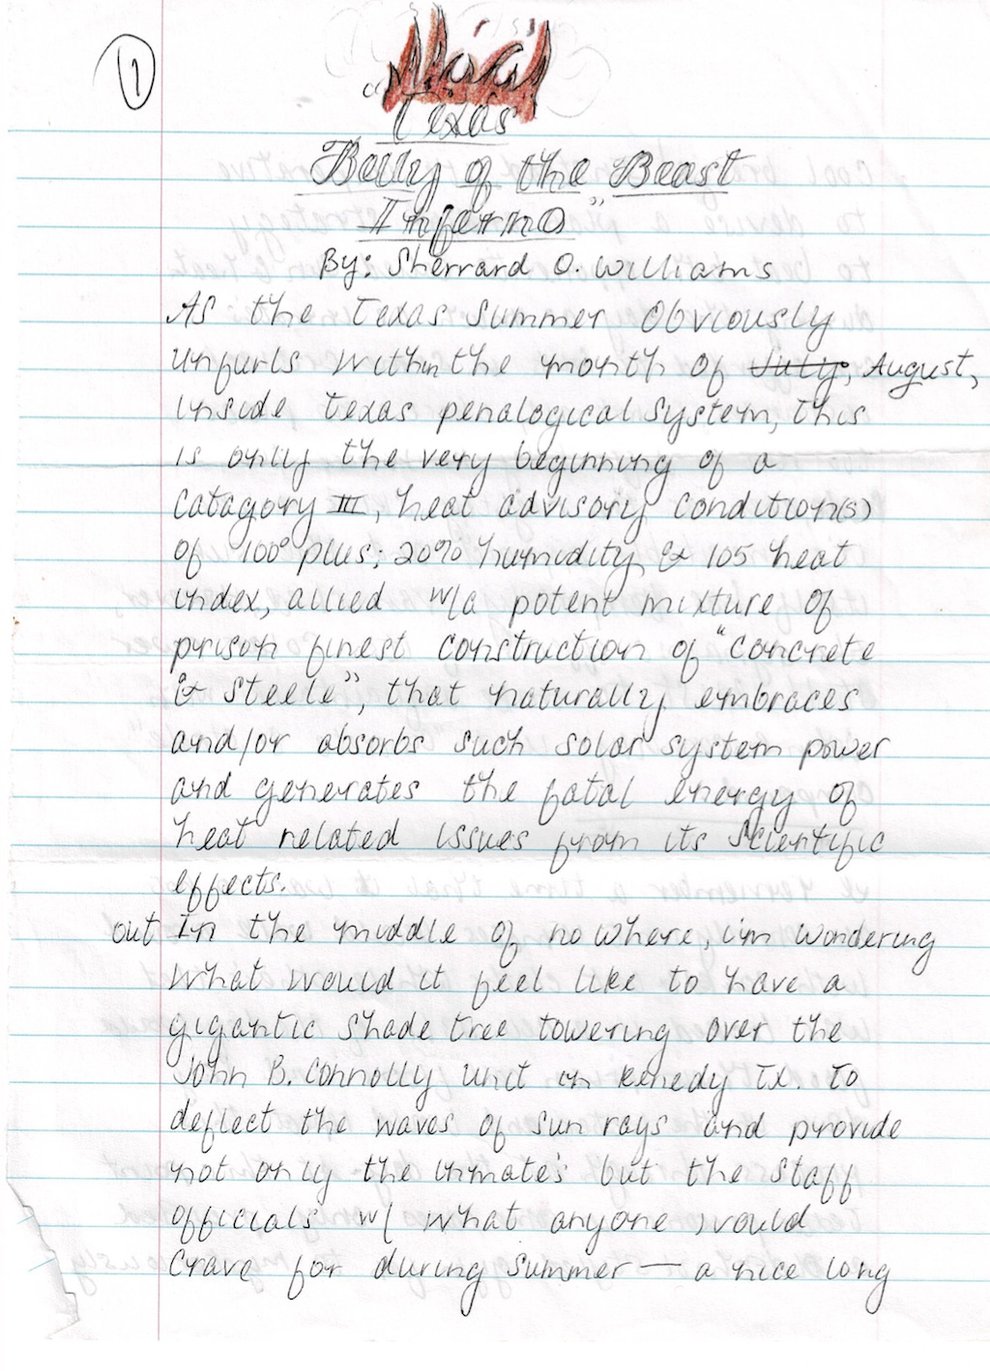 1
"Texas
Belly of the Beast
Inferno"
By: Sherrard O. Williams
As the Texas Summer Obviously
unfurls within the month of July, August,
inside Texas penalogical system, this
is only the very beginning of a
Catagory III, heat advisory condition(s)
of 100° plus; 20% humidity & 105 heat
index, allied w/a potent mixture of
prison finest construction of "concrete
& steele", that naturally embraces
and/or absorbs such solar system power
and generates the fatal energy of
heat related issues from its scientific
effects.
out In the middle of no where, i'm wondering
what would it feel like to have a
gigantic shade tree towering over the
John B. Connolly unit in Kenedy Tx. to
deflect the waves of sun rays and provide
not only the inmate's but the staff
officials w/ what anyone would
crave for during summer — a nice long